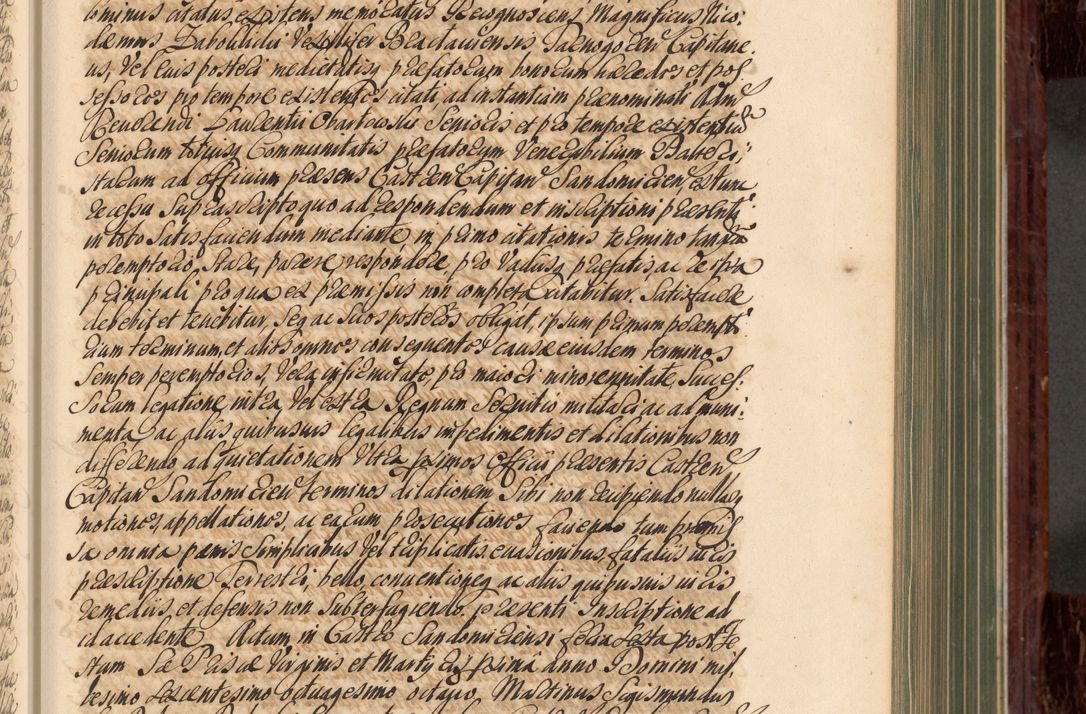 ominus citatus, existens memoratus Recognoscens Magnificus Nico:
demus Vexillifer Capitane:
us, Vel eius posteri medietatisq praefatorum bonorum haeredes et pos
sessores pro tempore existentes citati ad instantiam praenominati Adm
Reuerendi Laurentii Senioris et pro tempore existentiu
Seniorum totiusq Communitatis praefatorum Venerabilium
starum ad officium praesens Castren Capitan Sandomirien, estune
recessu suprascripto quo ad respondendum et inscriptioni praesenti
in toto Satisfaciendum mediante, in primo citationis termino tanqua
peremptorio, Stare, parere, respondere, pro Vadiisq praefatis, ac re ipsa
principali pro qua ex praemissis non completa citabitur. Satisfacere
debebit et tenebitur, Seq ac suos posteros obligat, ipsum primum perempto
rium terminum, et alios omnes consequentes causae eiusdem terminos
Semper peremptorios, Vera infirmitate, pro maiori minorennitate, Succes:
Sorum legatione intra Vel extra Regnum Seruitio militari ac ad muni:
menta, ac aliis quibusuis legalibus impedimentis et dilationibus non
differendo ad quietationem Vltra primos Officii praesentis Castren
Capitan Sandomirien terminos dilationem Sibi non recipiendo nullasq
motiones, appellationes, ac earum prosecutiones faciendo tum praemis
sa omnia paenis Simplicibus Vel triplicatis, euasionibus, fatalis iuris
praescriptione Terrestri, bello, conuentioneq ac aliis quibusuis iuris
remediis, et defensis non Subterfugiendo, praesenti Inscriptione ad
id accedente Actum in Castro Sandomiriensi feria Sexta post Fe
stum Sae Priscae Virginis et Martyris proxima Anno Domini mil
lesimo Sexcentesimo octuagesimo octauo. Martinus Sigismundus